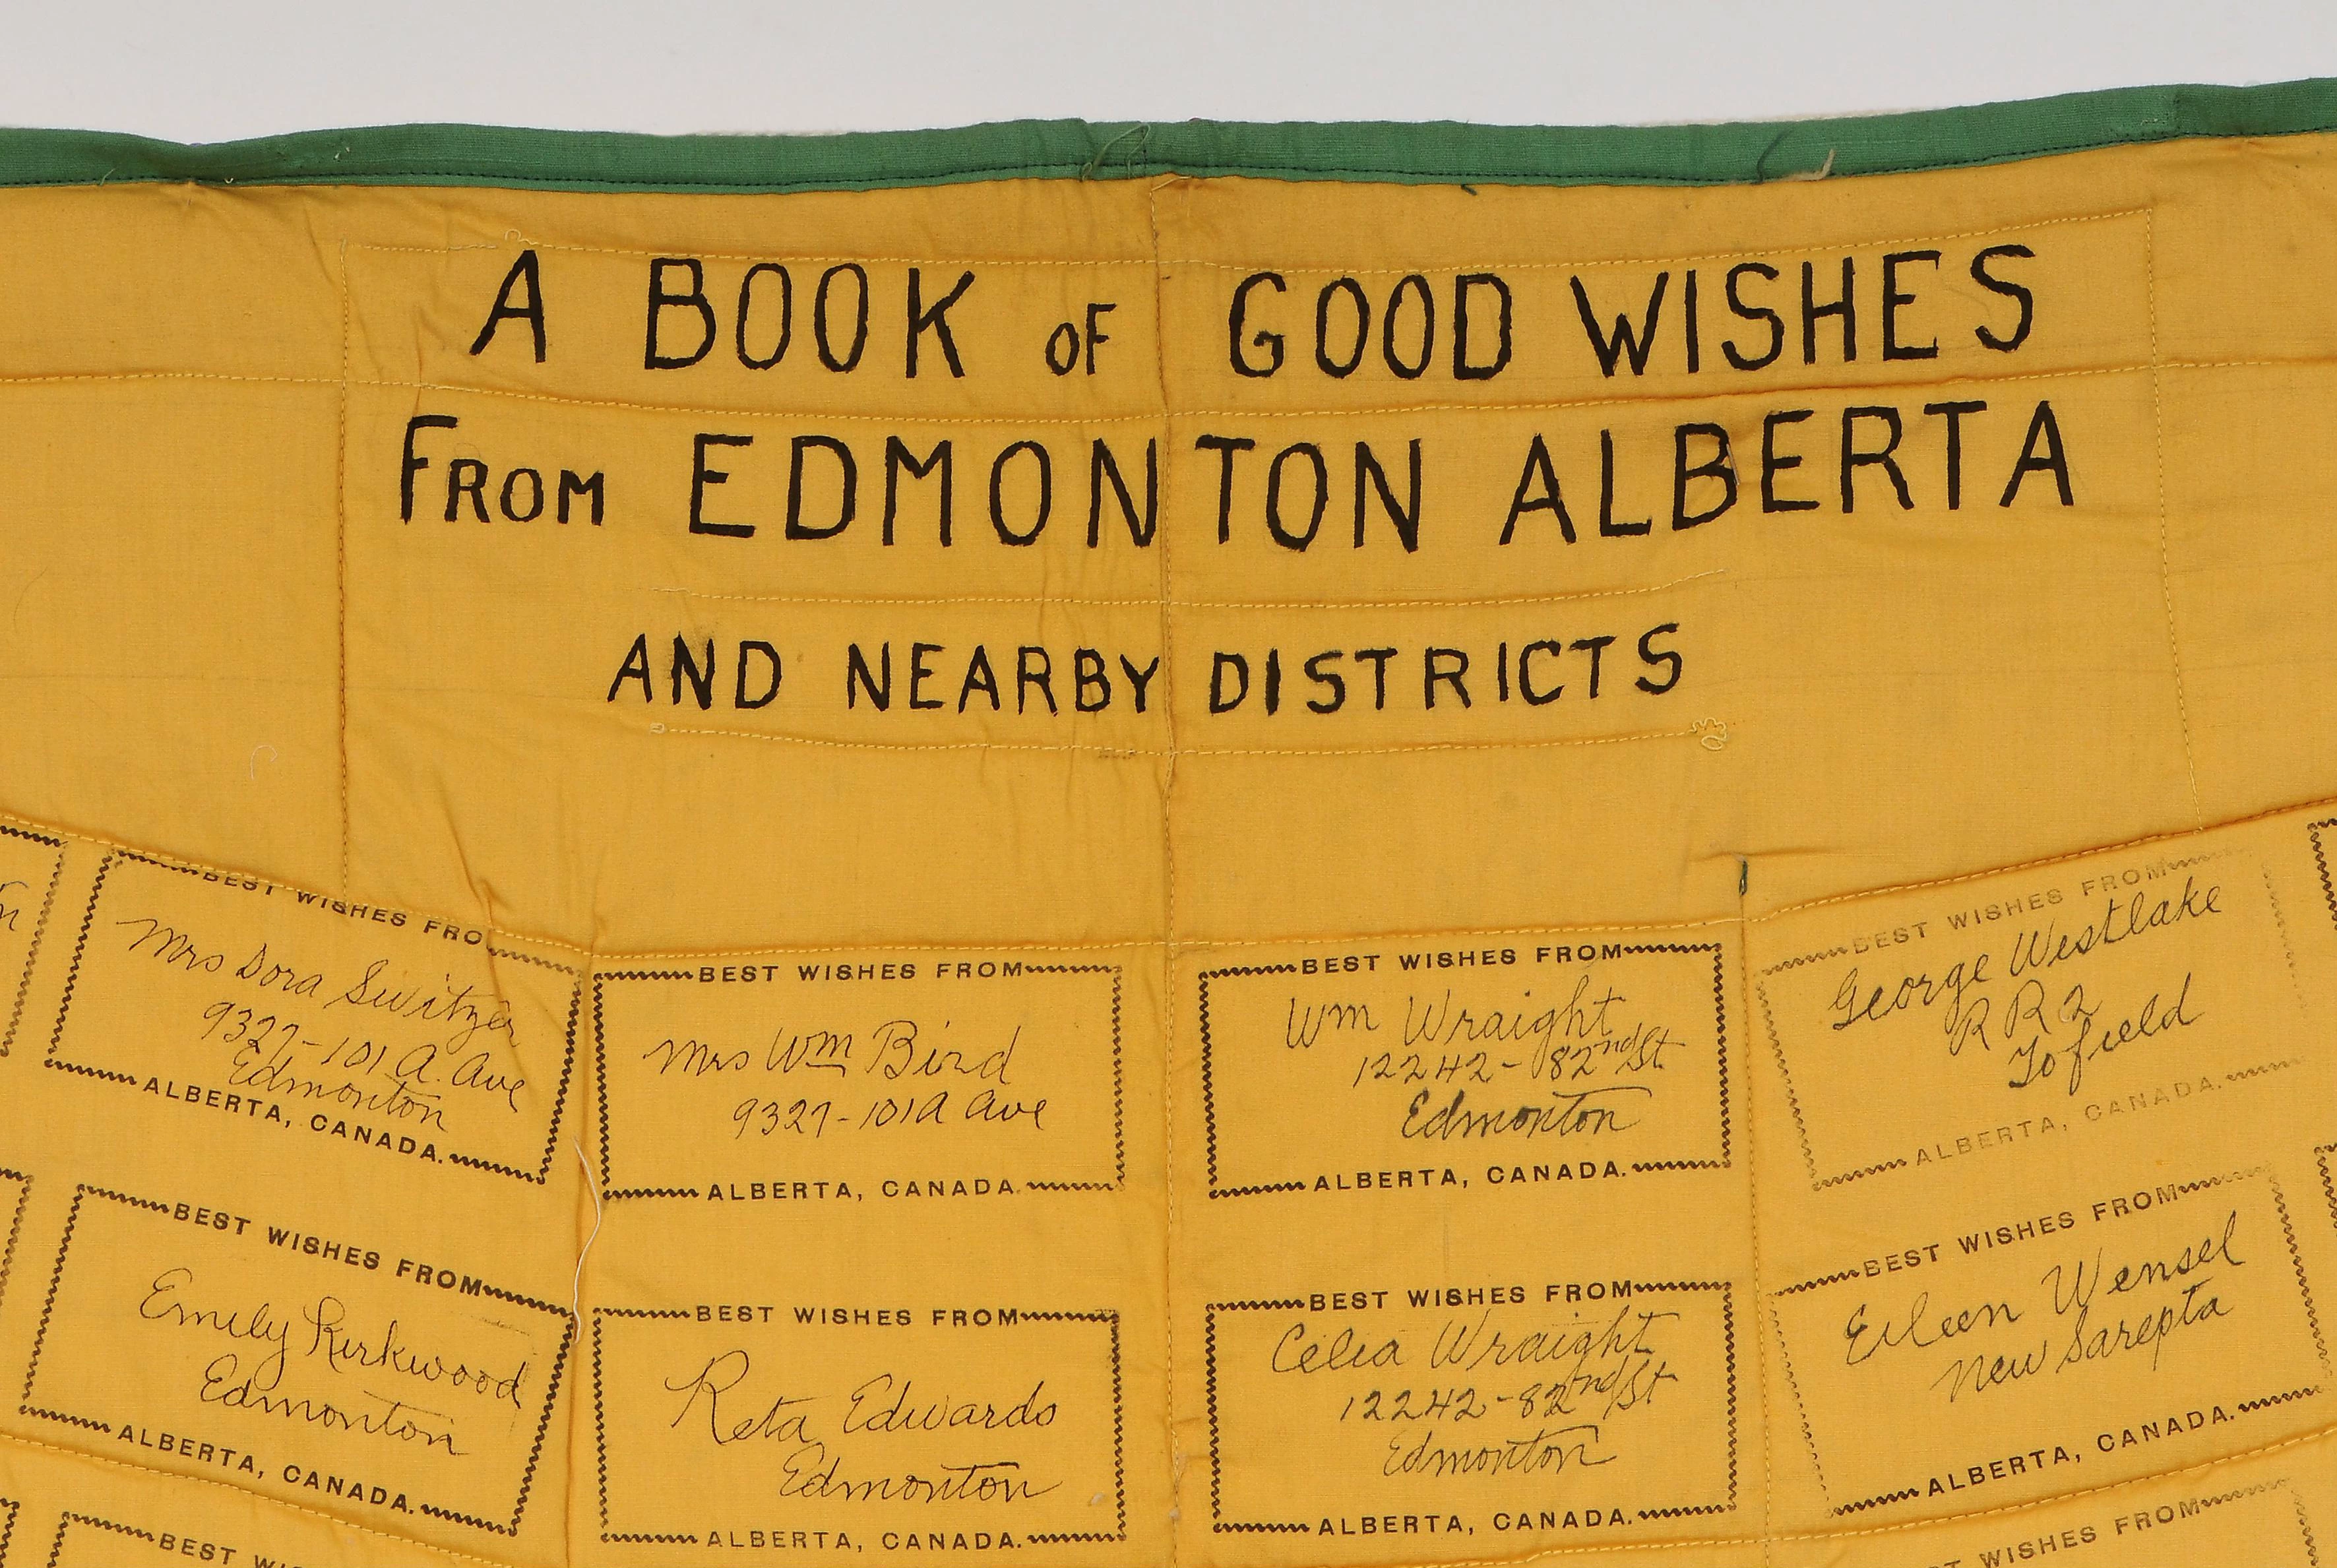 A BOOK OF GOOD WISHES
FROM EDMONTON ALBERTA
AND NEARBY DISTRICTS
BEST WISHES FROM
Mrs Dora Switzer
9327-101 A. Ave
Edmonton
ALBERTA, CANADA.
BEST WISHES FROM
Mrs Wm Bird
9327-101A Ave
ALBERTA, CANADA.
BEST WISHES FROM
Wm Wraight
12242-82nd St
Edmonton
ALBERTA, CANADA.
BEST WISHES FROM
George Westlake
R R 2
Tofield
ALBERTA, CANADA.
BEST WISHES FROM
Emily Kirkwood
Edmonton
ALBERTA, CANADA.
BEST WISHES FROM
Reta Edwards
Edmonton
ALBERTA, CANADA.
BEST WISHES FROM
Celia Wraight
12242-82nd St
Edmonton
ALBERTA, CANADA.
BEST WISHES FROM
Eileen Wensel
New Sarepta
ALBERTA, CANADA.
BEST
WISHES FROM